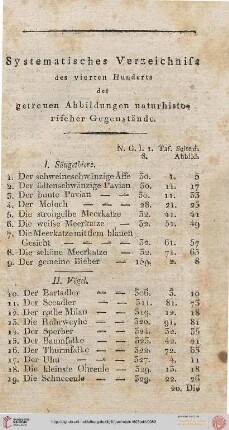 Systematisches Verzeichniß
des vierten Hunderts
der
getreuen Abbildungen naturhisto-
rischer Gegenstände.
N. G. i. 1. Taf. Seite d.
S. Abbild.
I. Säugethiere.
1. Der schweineschwänzige Affe 30. 1. 5
2. Der pavian 30. 11. 17
3. Der bunte Pavian — — 30. 11. 33
4. Der Moloch — — 28. 21. 25
5. Die Meerkatze 32. 41. 41
6. Die weiße Meerkatze — 32. 51. 49
7. Die Meerkatze mit dem blauen
Gesicht — — — 32. 61. 57
8. Die schöne Meerkatze — 32. 71. 65
9. Der gemeine Bieber — 159. 2. 8
II. Vögel.
10. Der Bartadler — — 306. 3. 10
11. Der Seeadler — — 311. 81. 73
12. Der Milan — — 319. 12. 18
13. Die Rohrweyhe — — 320. 91. 81
14. Der Sperber — — 324. 32. 35
15. Der Baumfalke — — 322. 42. 43
16. Der Thurmfalke — — 322. 72. 68
17. Der Uhu — — 327. 4. 11
18. Die kleinste Ohreule — 329. 13. 18
19. Die Schneeeule — — 329. 22. 26
20. Die